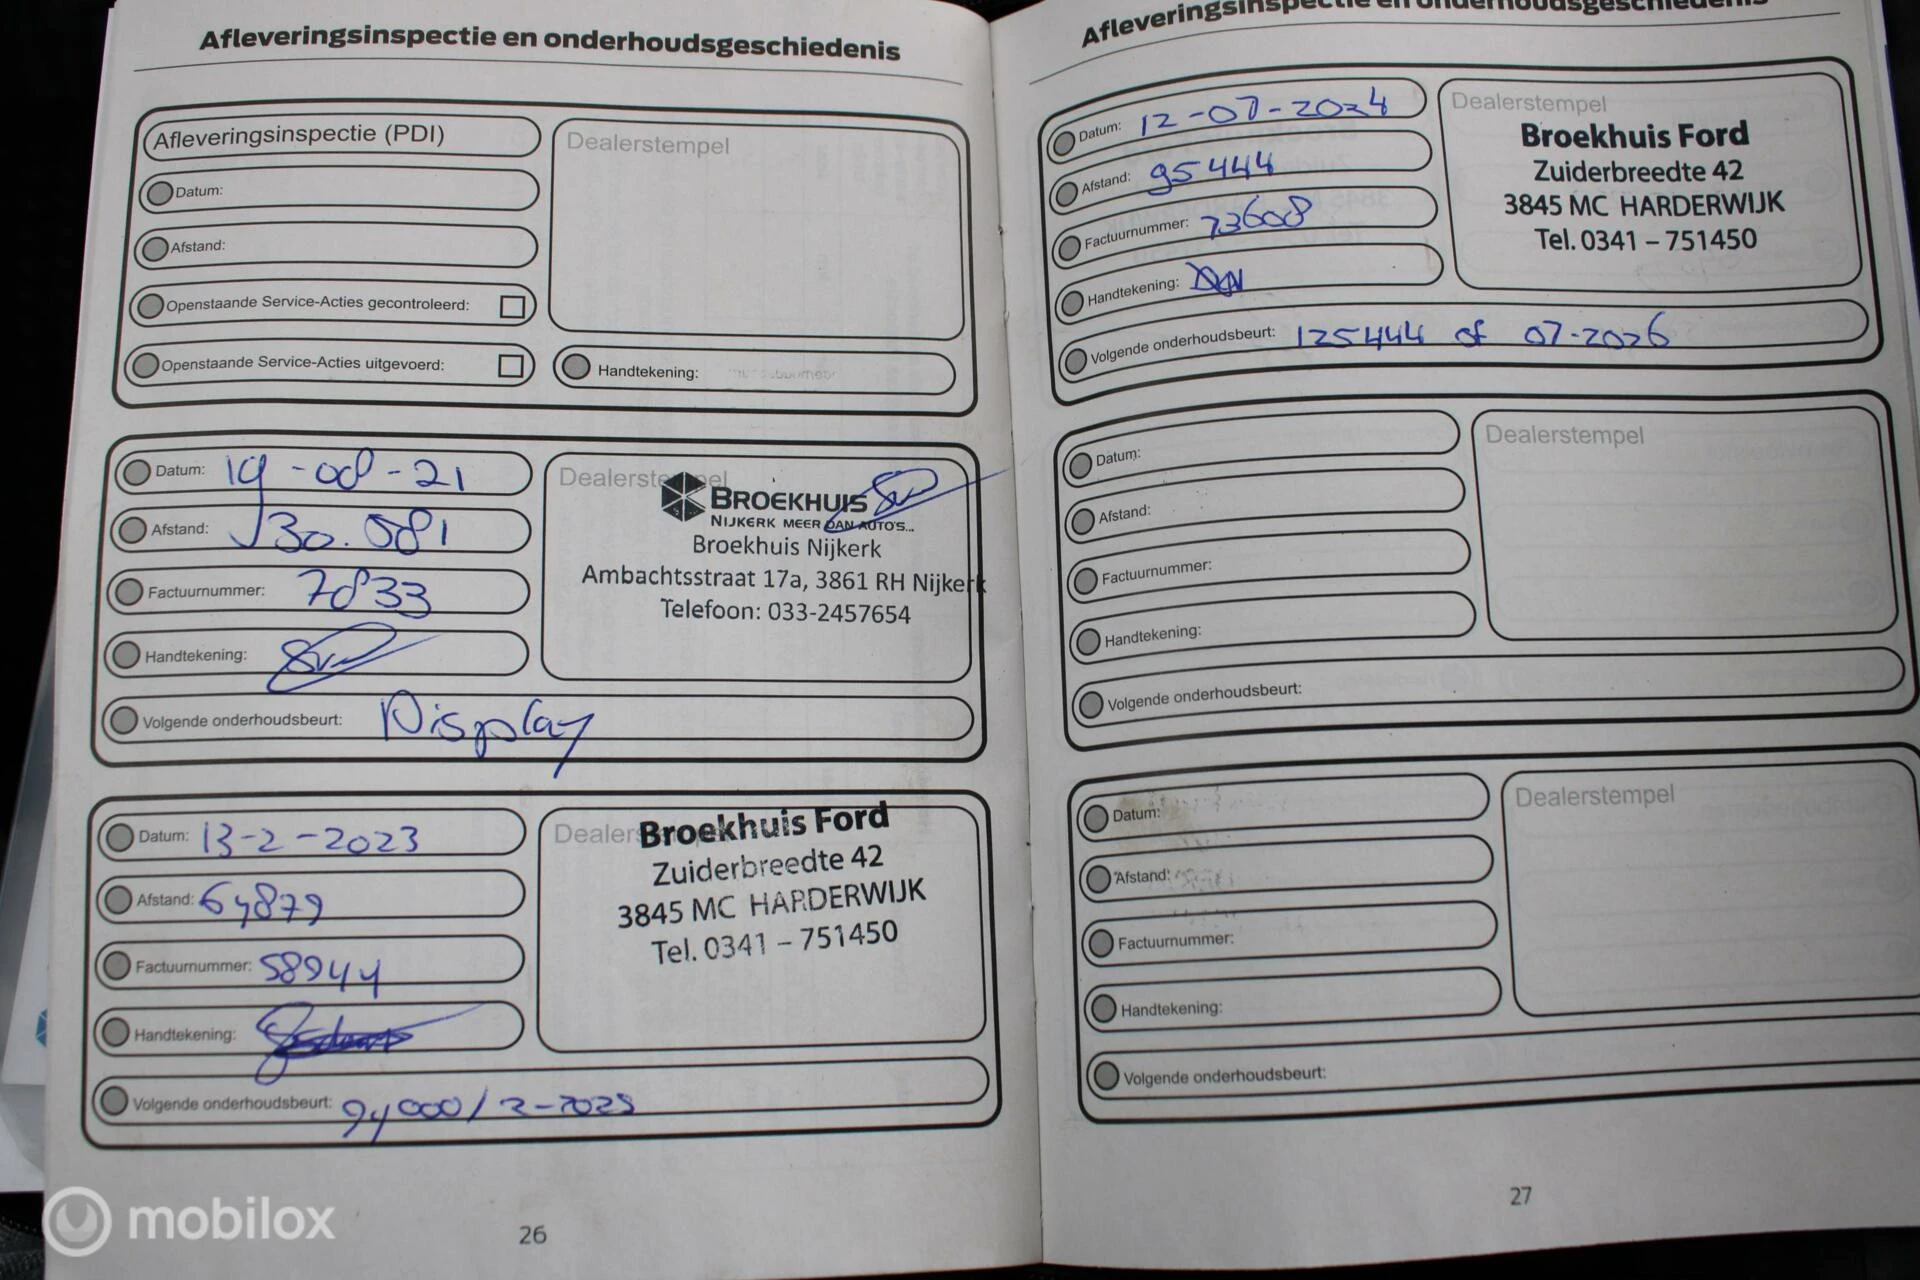 Afleveringsinspectie en onderhoudsgeschiedenis
Afleveringsinspectie (PDI)
Dealerstempel
Datum:
Afstand:
Openstaande Service-Acties gecontroleerd:
Openstaande Service-Acties uitgevoerd:
Handtekening:
Datum: 19-08-21
Afstand: 30.081
Factuurnummer: 7833
Handtekening:
Volgende onderhoudsbeurt: Display
Dealerstempel
BROEKHUIS
NIJKERK MEER DAN AUTO'S...
Broekhuis Nijkerk
Ambachtsstraat 17a, 3861 RH Nijkerk
Telefoon: 033-2457654
Datum: 13-2-2023
Afstand: 64879
Factuurnummer: 58944
Handtekening:
Volgende onderhoudsbeurt: 94000/2-2025
Broekhuis Ford
Zuiderbreedte 42
3845 MC HARDERWIJK
Tel. 0341 – 751450
26
Afleveringsinspectie en onderhoudsgeschiedenis
Datum: 12-07-2024
Afstand: 95444
Factuurnummer: 73608
Handtekening:
Volgende onderhoudsbeurt: 125444 of 07-2026
Dealerstempel
Broekhuis Ford
Zuiderbreedte 42
3845 MC HARDERWIJK
Tel. 0341 – 751450
Datum:
Afstand:
Factuurnummer:
Handtekening:
Volgende onderhoudsbeurt:
Dealerstempel
Datum:
Afstand:
Factuurnummer:
Handtekening:
Volgende onderhoudsbeurt:
Dealerstempel
27
mobilox